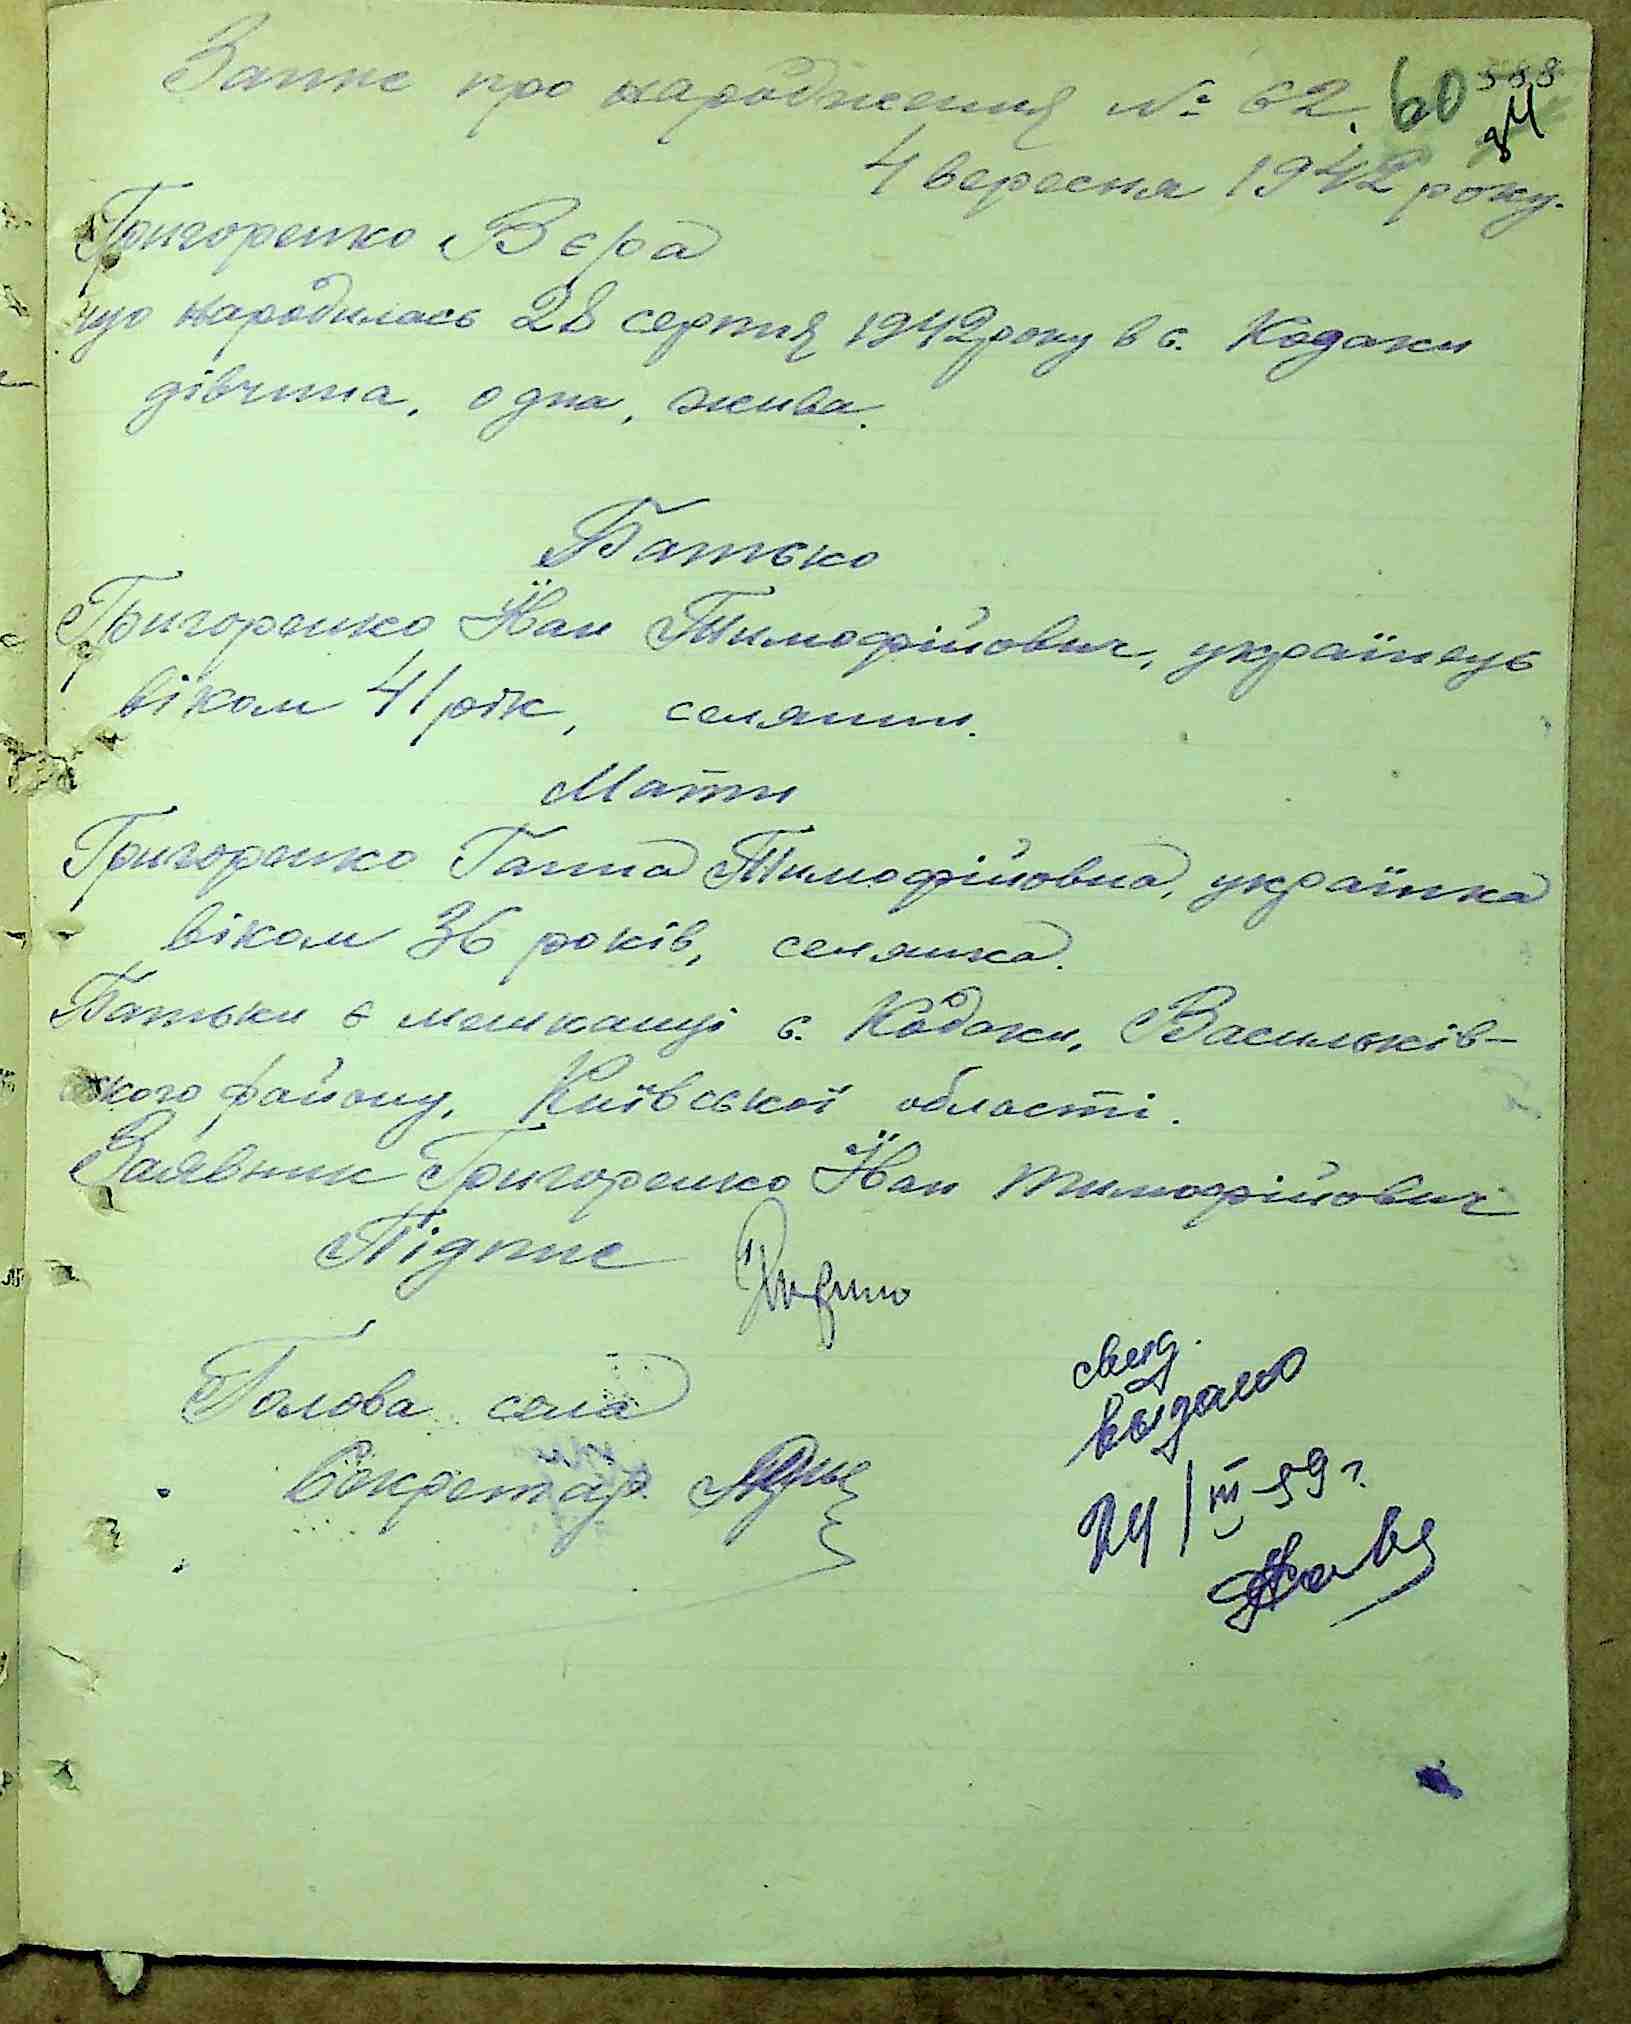 Запис про народження № 62. 60
4 вересня 1942 року.
Григоренко Вєра
що народилась 28 серпня 1942 року в с. Кодаки
дівчина, одна, жива.
Батько
Григоренко Іван Тимофійович, українець
віком 41 рік, селянин.
Мати
Григоренко Ганна Тимофійовна, українка
віком 36 років, селянка.
Батьки є мешканці с. Кодаки, Васильків-
ського району, Київської області.
Заявник Григоренко Іван Тимофійович
Підпис
Голова села
Секретар
свид.
выдано
24/III-59 г.